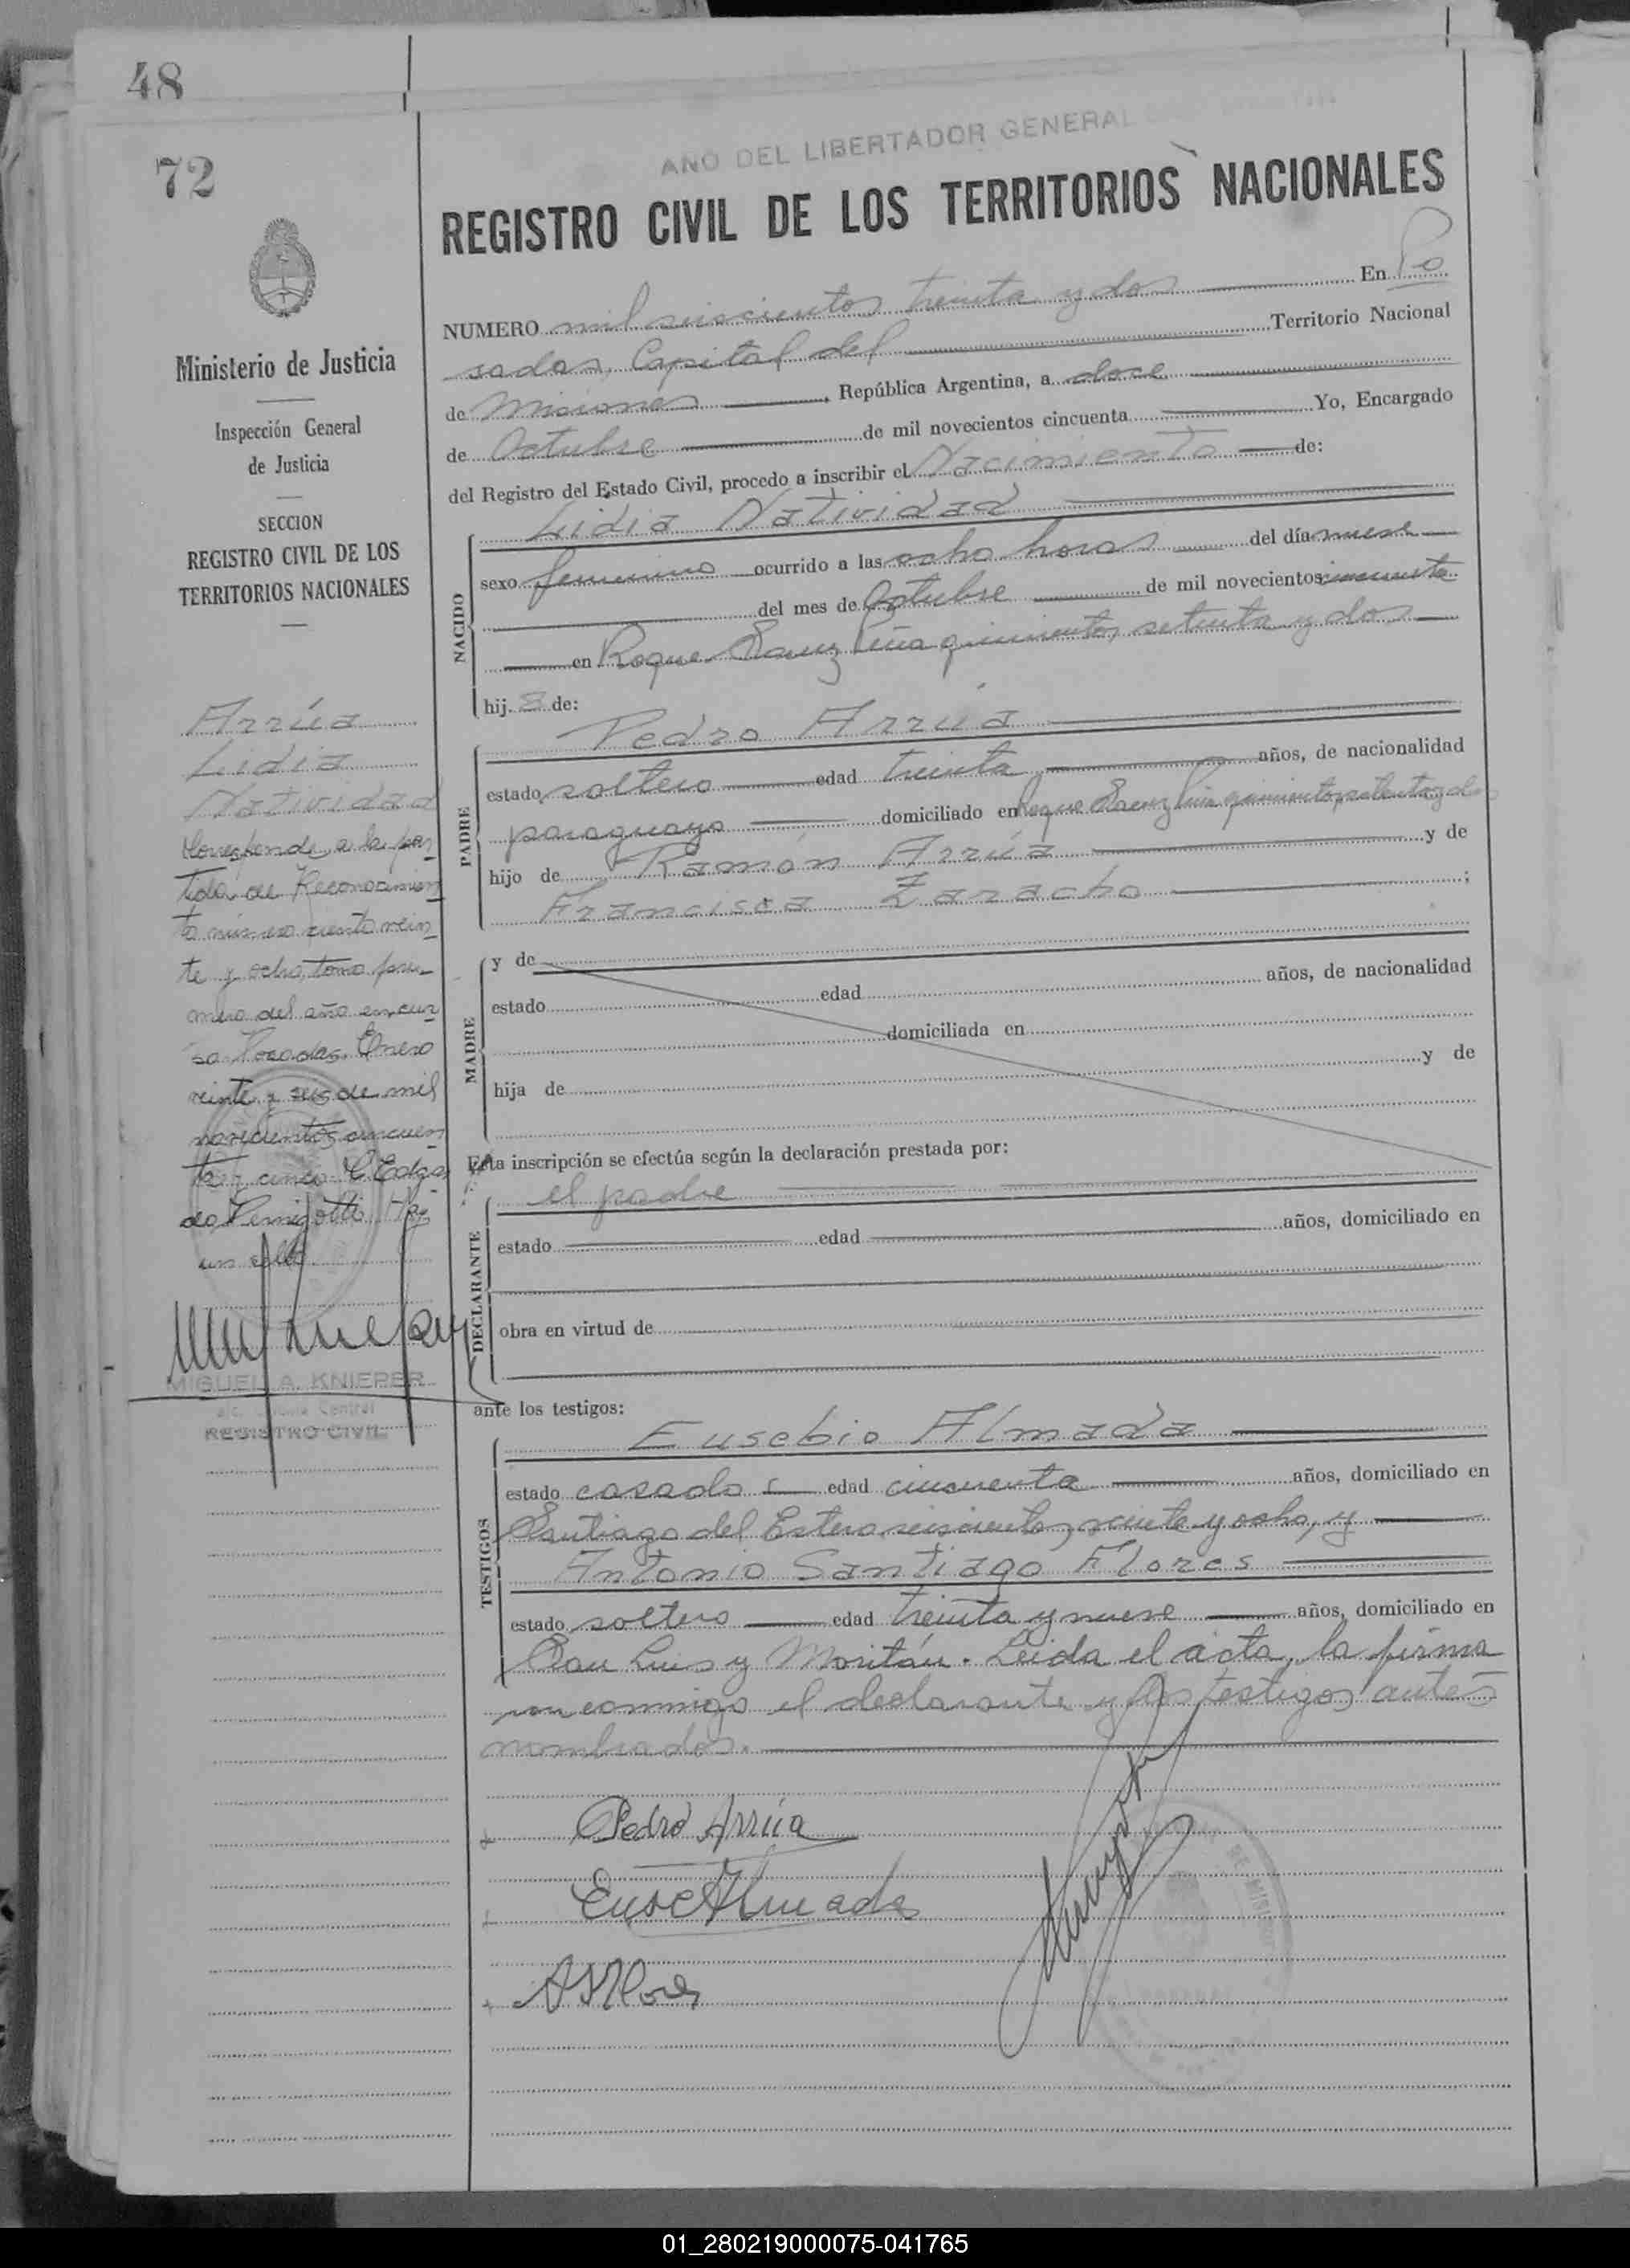 48
72
AÑO DEL LIBERTADOR GENERAL
REGISTRO CIVIL DE LOS TERRITORIOS NACIONALES
NUMERO mil seiscientos treinta y dos En Po
sadas, Capital del Territorio Nacional
de Misiones, República Argentina, a doce
de Octubre de mil novecientos cincuenta Yo, Encargado
del Registro del Estado Civil, procedo a inscribir el Nacimiento de:
Ministerio de Justicia
Inspección General
de Justicia
SECCION
REGISTRO CIVIL DE LOS
TERRITORIOS NACIONALES
Arrúa
Lidia
Natividad
Corresponde a la par_
tida de Reconocimien_
to número ciento vein_
te y ocho, tomo pri_
mero del año en cur_
so. Posadas. Enero
veinte y seis de mil
novecientos cincuen_
ta y cinco
Hay
un sello
MIGUEL A. KNIEPER
Central
REGISTRO CIVIL
NACIDO
Lidia Natividad
sexo femenino ocurrido a las ocho horas del día nueve
del mes de Octubre de mil novecientos cincuenta
en Roque Saenz Peña quinientos setenta y dos
hija de:
PADRE
Pedro Arrúa
estado soltero edad treinta años, de nacionalidad
paraguaya domiciliado en Roque Saenz Peña quinientos setenta y dos
hijo de Ramón Arrúa y de
Francisca Zaracho;
MADRE
y de
estado edad años, de nacionalidad
domiciliada en
hija de y de
Esta inscripción se efectúa según la declaración prestada por:
DECLARANTE
el padre
estado edad años, domiciliado en
obra en virtud de
ante los testigos:
TESTIGOS
Eusebio Almada
estado casado edad cincuenta años, domiciliado en
Santiago del Estero seiscientos veinte y ocho, y
Antonio Santiago Flores
estado soltero edad treinta y nueve años, domiciliado en
San Luis y Moritán. Leida el acta, la firma
ron conmigo el declarante y los testigos antes
nombrados.
Pedro Arrúa
Euse Almada
A S Flores
01_280219000075-041765